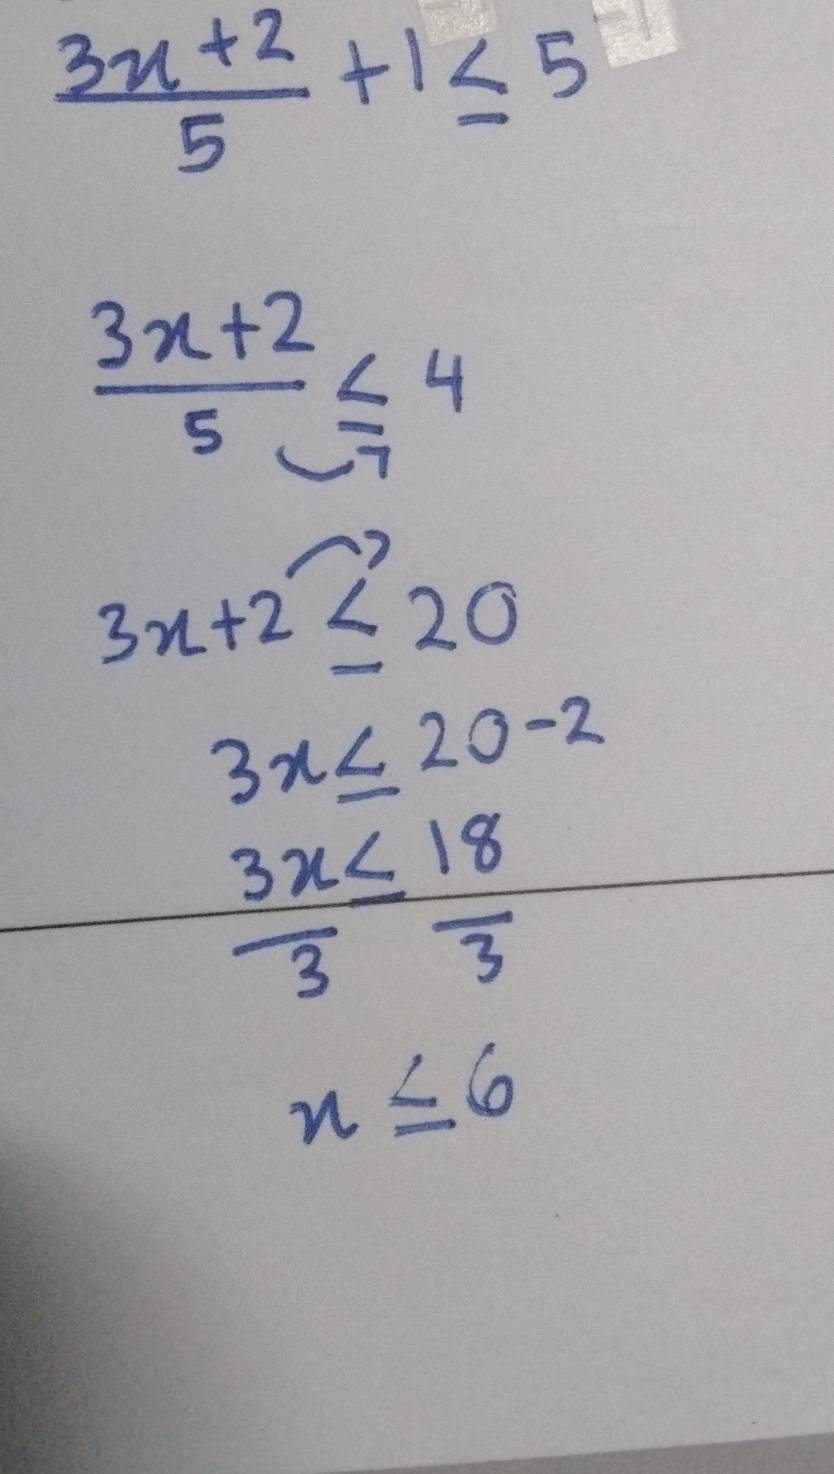 3x+2/5 +1 ≤ 5
3x+2/5 ≤ 4
3x+2 ≤ 20
3x ≤ 20-2
3x/3 ≤ 18/3
x ≤ 6